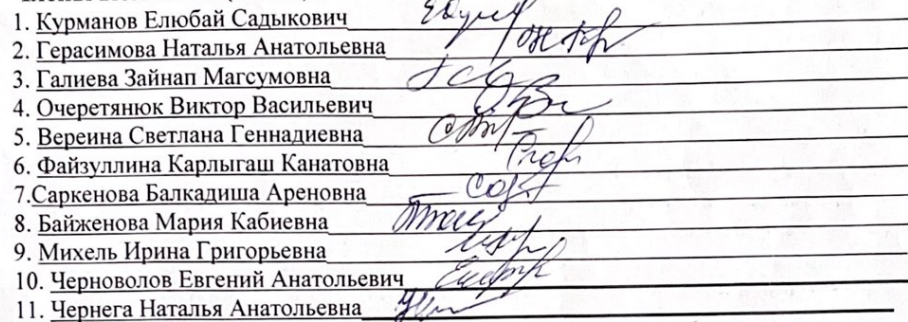 1. Курманов Елюбай Садыкович
2. Герасимова Наталья Анатольевна
3. Галиева Зайнап Магсумовна
4. Очеретянюк Виктор Васильевич
5. Вереина Светлана Геннадиевна
6. Файзуллина Карлыгаш Канатовна
7.Саркенова Балкадиша Ареновна
8. Байженова Мария Кабиевна
9. Михель Ирина Григорьевна
10. Черноволов Евгений Анатольевич
11. Чернега Наталья Анатольевна